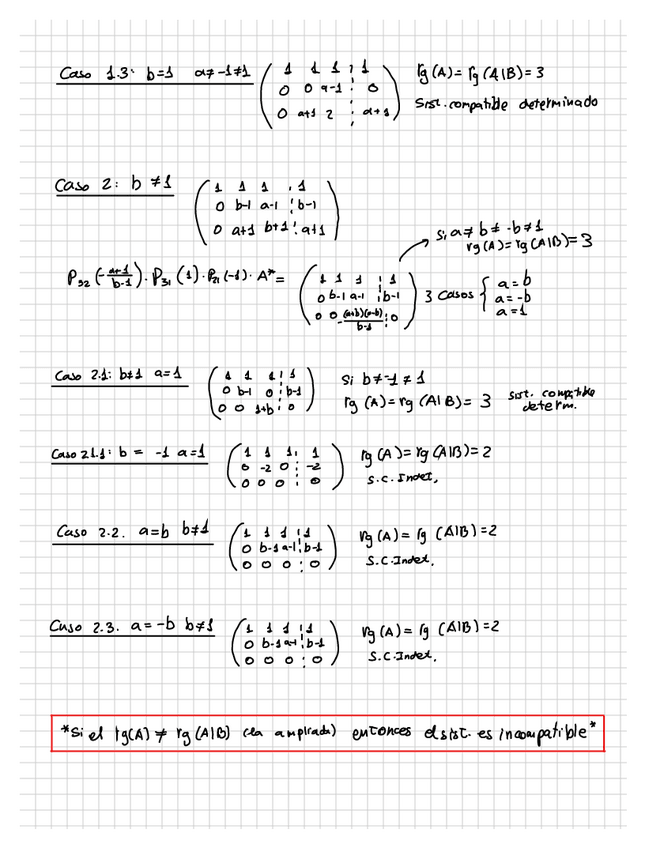 Caso 1.3: b=1 a≠-1≠1 ( 1 1 1 ¦ 1 rg(A)=rg(A|B)=3
0 0 a-1 ¦ 0 Sist. compatible determinado
0 a+1 2 ¦ a+1 )
Caso 2: b≠1 ( 1 1 1 ¦ 1
0 b-1 a-1 ¦ b-1
0 a+1 b+1 ¦ a+1 )
si a≠b≠-b≠1
rg(A)=rg(A|B)=3
P₃₂(-(a+1)/(b-1))·P₃₁(1)·P₂₁(-1)·A*= ( 1 1 1 ¦ 1
0 b-1 a-1 ¦ b-1
0 0 -(a+b)(a-b)/(b-1) ¦ 0 ) 3 casos { a=b
a=-b
a=1
Caso 2.1: b≠1 a=1 ( 1 1 1 ¦ 1
0 b-1 0 ¦ b-1
0 0 1+b ¦ 0 ) Si b≠-1≠1
rg(A)=rg(A|B)=3 sist. compatible
determ.
Caso 2.1.1: b = -1 a=1 ( 1 1 1 ¦ 1
0 -2 0 ¦ -2
0 0 0 ¦ 0 ) rg(A)=rg(A|B)=2
S.C. Indet.
Caso 2.2. a=b b≠1 ( 1 1 1 ¦ 1
0 b-1 a-1 ¦ b-1
0 0 0 ¦ 0 ) rg(A)=rg(A|B)=2
S.C.Indet.
Caso 2.3. a=-b b≠1 ( 1 1 1 ¦ 1
0 b-1 a-1 ¦ b-1
0 0 0 ¦ 0 ) rg(A)=rg(A|B)=2
S.C.Indet.
*Si el rg(A)≠rg(A|B) (la ampliada) entonces el sist. es incompatible*